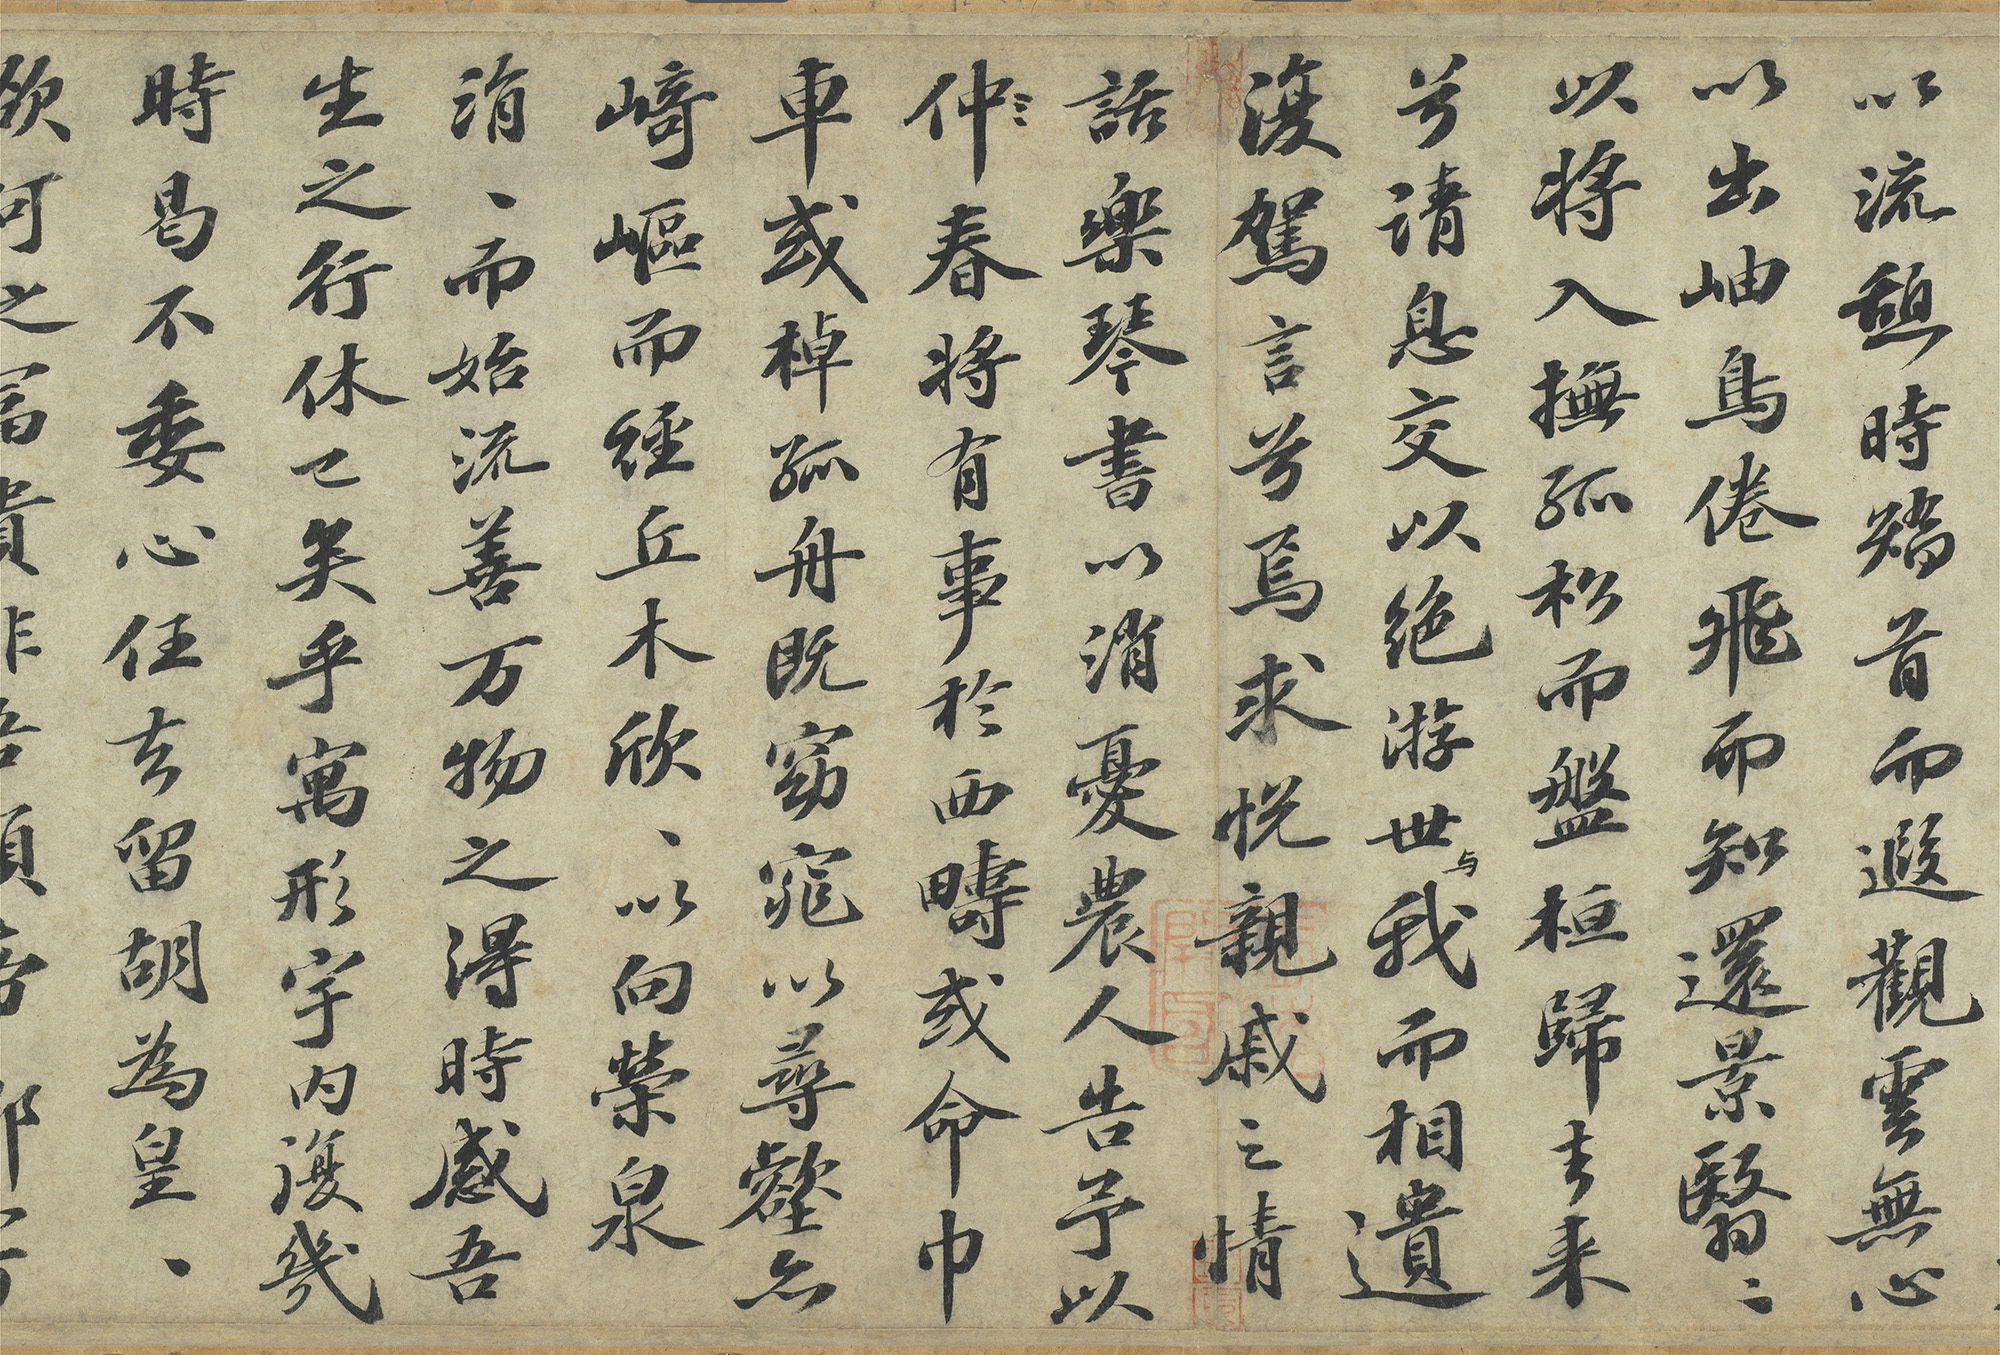 以流憩時矯首而遐觀雲無心
以出岫鳥倦飛而知還景翳〻
以将入撫孤松而盤桓歸去来
兮請息交以絶游世与我而相遺
復駕言兮焉求悦親戚之情
話樂琴書以消憂農人告予以
仲春将有事於西疇或命巾
車或棹孤舟既窈窕以尋壑亦
崎嶇而經丘木欣、以向榮泉
涓、而始流善万物之得時感吾
生之行休已矣乎寓形宇内復幾
時曷不委心任去留胡為皇、
欲何之富貴非吾願帝